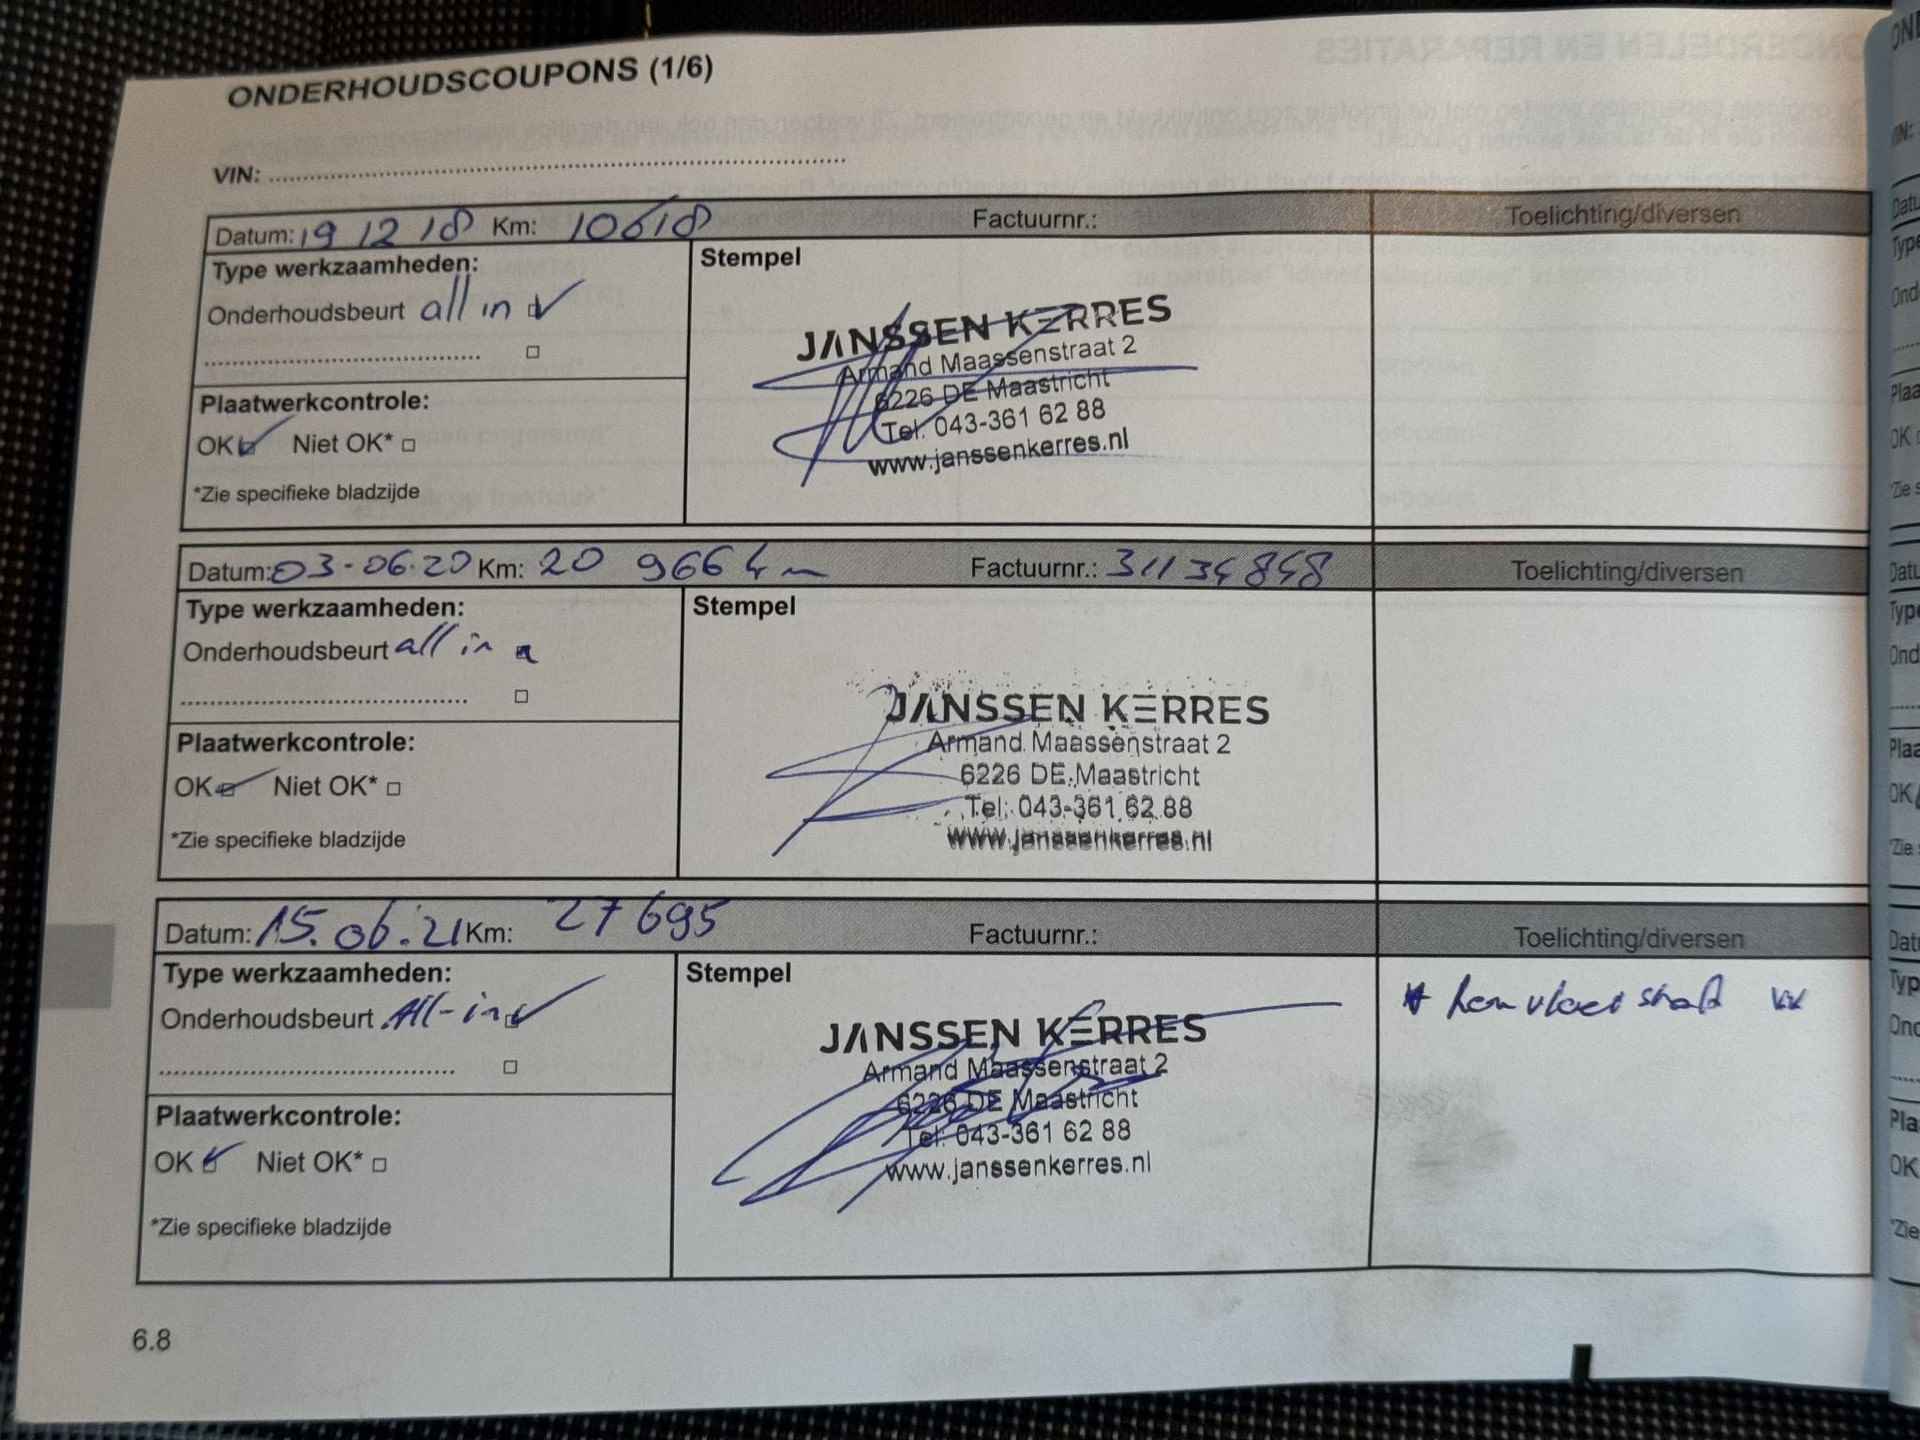 ONDERHOUDSCOUPONS (1/6)
VIN:
Datum: 19 12 18 Km: 10618 Factuurnr.: Toelichting/diversen
Type werkzaamheden:
Stempel
Onderhoudsbeurt all in
JANSSEN KERRES
Armand Maassenstraat 2
6226 DE Maastricht
Tel: 043-361 62 88
www.janssenkerres.nl
Plaatwerkcontrole:
OK Niet OK*
*Zie specifieke bladzijde
Datum: 03-06-20 Km: 20 966 km Factuurnr.: 31134848 Toelichting/diversen
Type werkzaamheden:
Stempel
Onderhoudsbeurt all in
JANSSEN KERRES
Armand Maassenstraat 2
6226 DE Maastricht
Tel: 043-361 62 88
www.janssenkerres.nl
Plaatwerkcontrole:
OK Niet OK*
*Zie specifieke bladzijde
Datum: 15.06.21 Km: 27695 Factuurnr.: Toelichting/diversen
Type werkzaamheden:
Stempel
Onderhoudsbeurt All-in
JANSSEN KERRES
Armand Maassenstraat 2
6226 DE Maastricht
Tel: 043-361 62 88
www.janssenkerres.nl
* remvloeistof vv
Plaatwerkcontrole:
OK Niet OK*
*Zie specifieke bladzijde
6.8